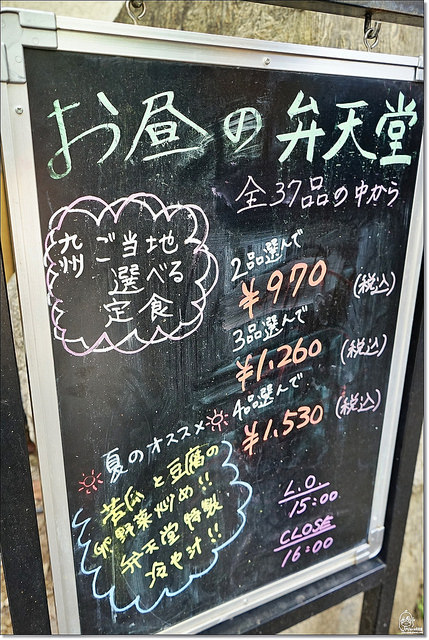 お昼の弁天堂
全37品の中から
九州 ご当地
選べる
定食
2品選んで
¥970 (税込)
3品選んで
¥1,260 (税込)
4品選んで
¥1,530 (税込)
夏のオススメ
苦瓜と豆腐の
卵野菜炒め!!
弁天堂特製
冷や汁!!
L.O
15:00
CLOSE
16:00